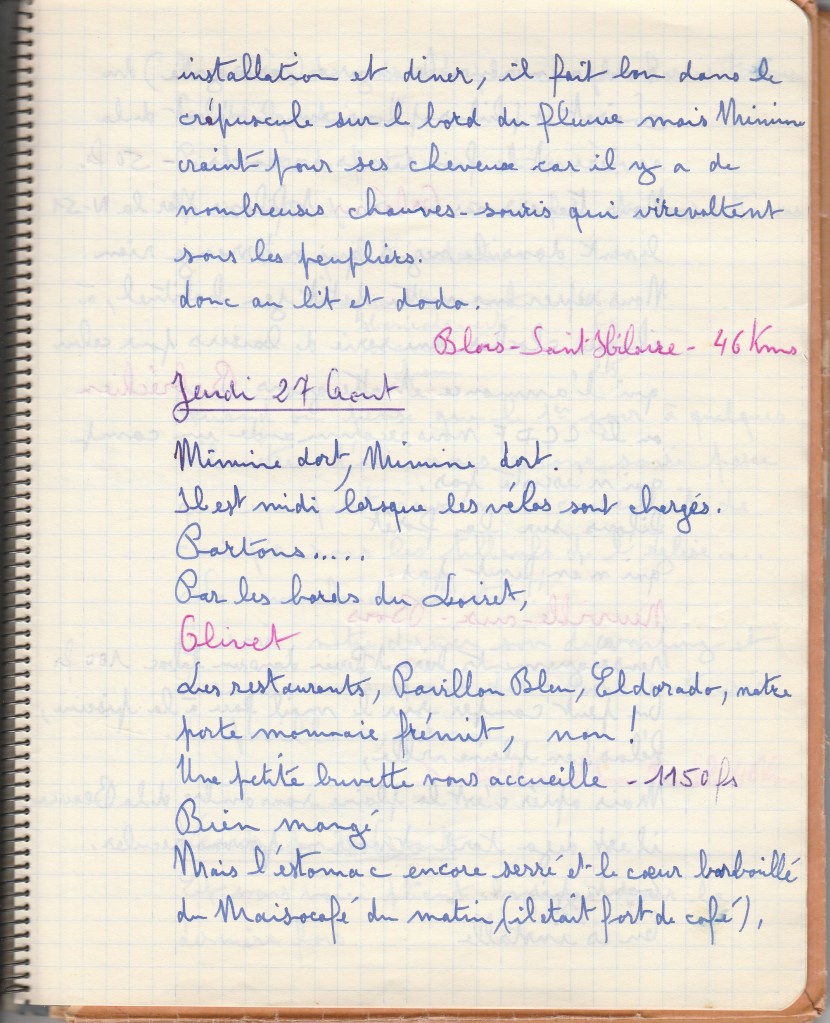 installation et diner, il fait bon dans le
crépuscule sur le bord du fleuve mais Mimine
craint pour ses cheveux car il y a de
nombreuses chauves-souris qui virevoltent
sous les peupliers.
donc au lit et dodo.
Blois-Saint Hilaire - 46 Kms
Jeudi 27 Aout
Mimine dort, Mimine dort.
Il est midi lorsque les vélos sont chargés.
Partons.....
Par les bords du Loiret,
Olivet
Les restaurants, Pavillon Bleu, Eldorado, notre
porte monnaie frémit, non !
Une petite buvette nous accueille - 1150 frs
Bien mangé
Mais l'estomac encore serré et le cœur barbouillé
du Maisocafé du matin, (il etait fort de café),